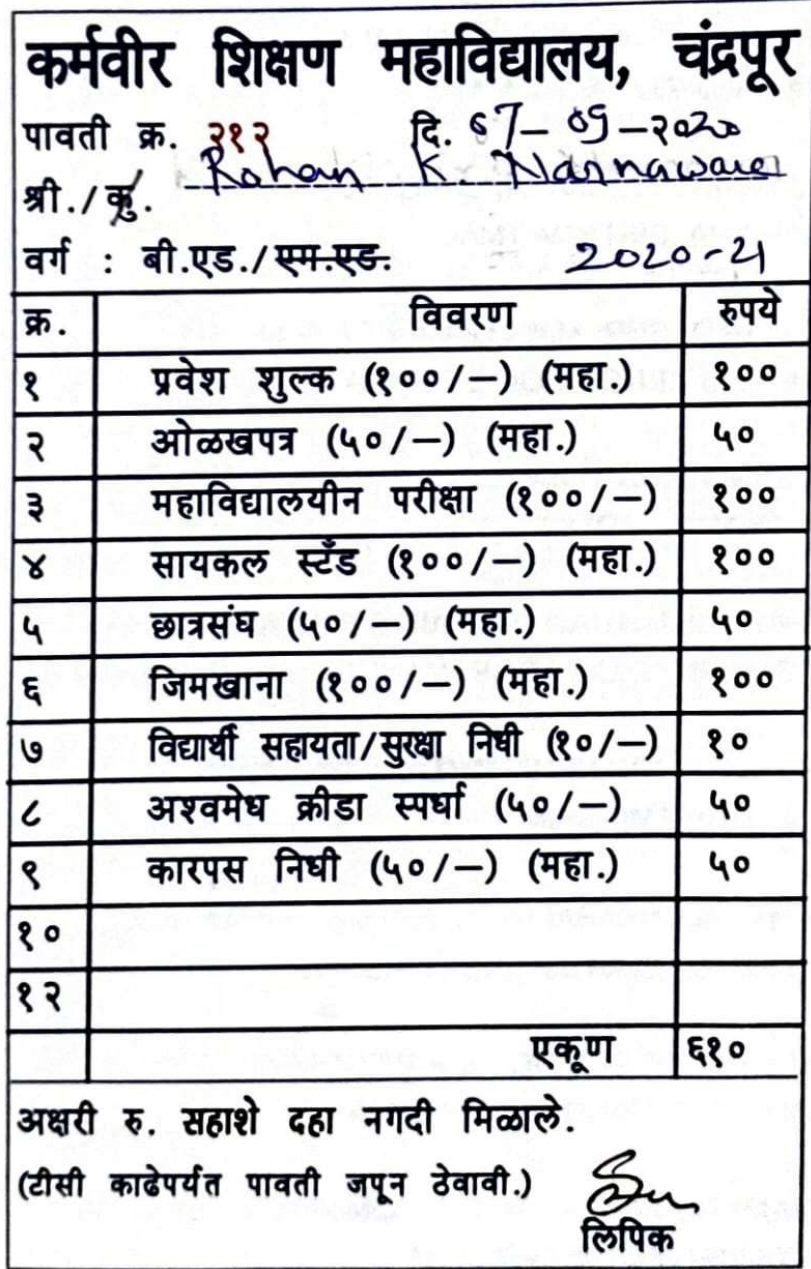 कर्मवीर शिक्षण महाविद्यालय, चंद्रपूर
पावती क्र. २१२ दि. 07-09-२०२०
श्री./कु. Rohan K. Nannaware
वर्ग : बी.एड./एम.एड. 2020-21
क्र. विवरण रुपये
१ प्रवेश शुल्क (१००/–) (महा.) १००
२ ओळखपत्र (५०/–) (महा.) ५०
३ महाविद्यालयीन परीक्षा (१००/–) १००
४ सायकल स्टँड (१००/–) (महा.) १००
५ छात्रसंघ (५०/–) (महा.) ५०
६ जिमखाना (१००/–) (महा.) १००
७ विद्यार्थी सहायता/सुरक्षा निधी (१०/–) १०
८ अश्वमेध क्रीडा स्पर्धा (५०/–) ५०
९ कारपस निधी (५०/–) (महा.) ५०
१०
१२
एकूण ६१०
अक्षरी रु. सहाशे दहा नगदी मिळाले.
(टीसी काढेपर्यत पावती जपून ठेवावी.)
लिपिक